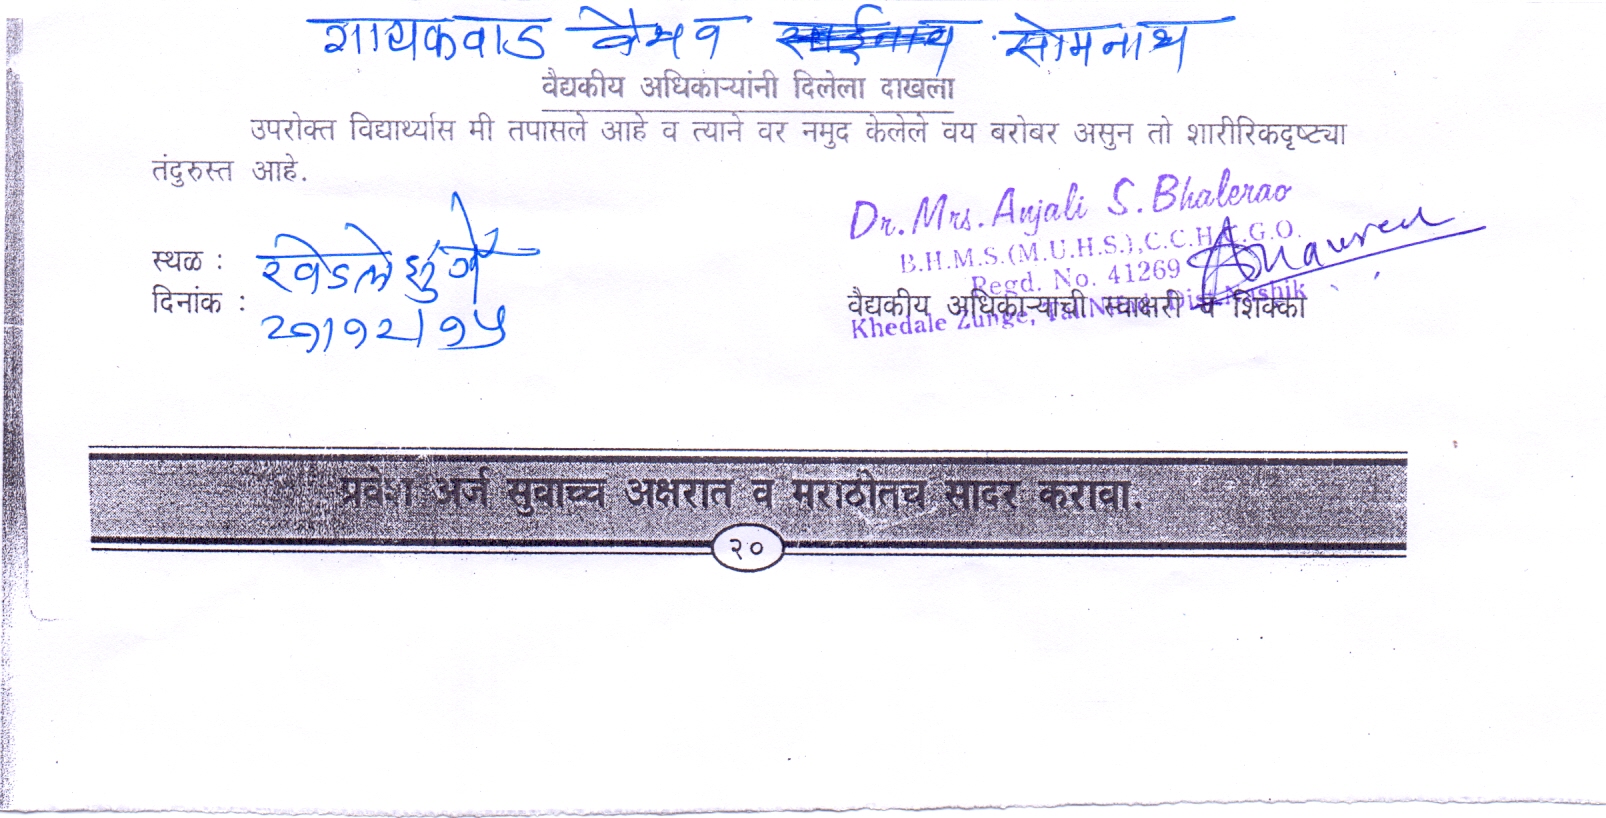 गायकवाड वैभव साईनाथ सोमनाथ
वैद्यकीय अधिकाऱ्यांनी दिलेला दाखला
उपरोक्त विद्यार्थ्यास मी तपासले आहे व त्याने वर नमुद केलेले वय बरोबर असुन तो शारीरिकदृष्ट्या
तंदुरुस्त आहे.
Dr. Mrs. Anjali S. Bhalerao
B.H.M.S.(M.U.H.S.),C.C.H.,C.G.O.
Regd. No. 41269
स्थळ : खेडलेझुंगे
दिनांक :
वैद्यकीय अधिकाऱ्याची स्वाक्षरी व शिक्का
Khedale Zunge, Tal. Niphad, Dist. Nashik
प्रवेश अर्ज सुवाच्च अक्षरात व मराठीतच सादर करावा.
२०